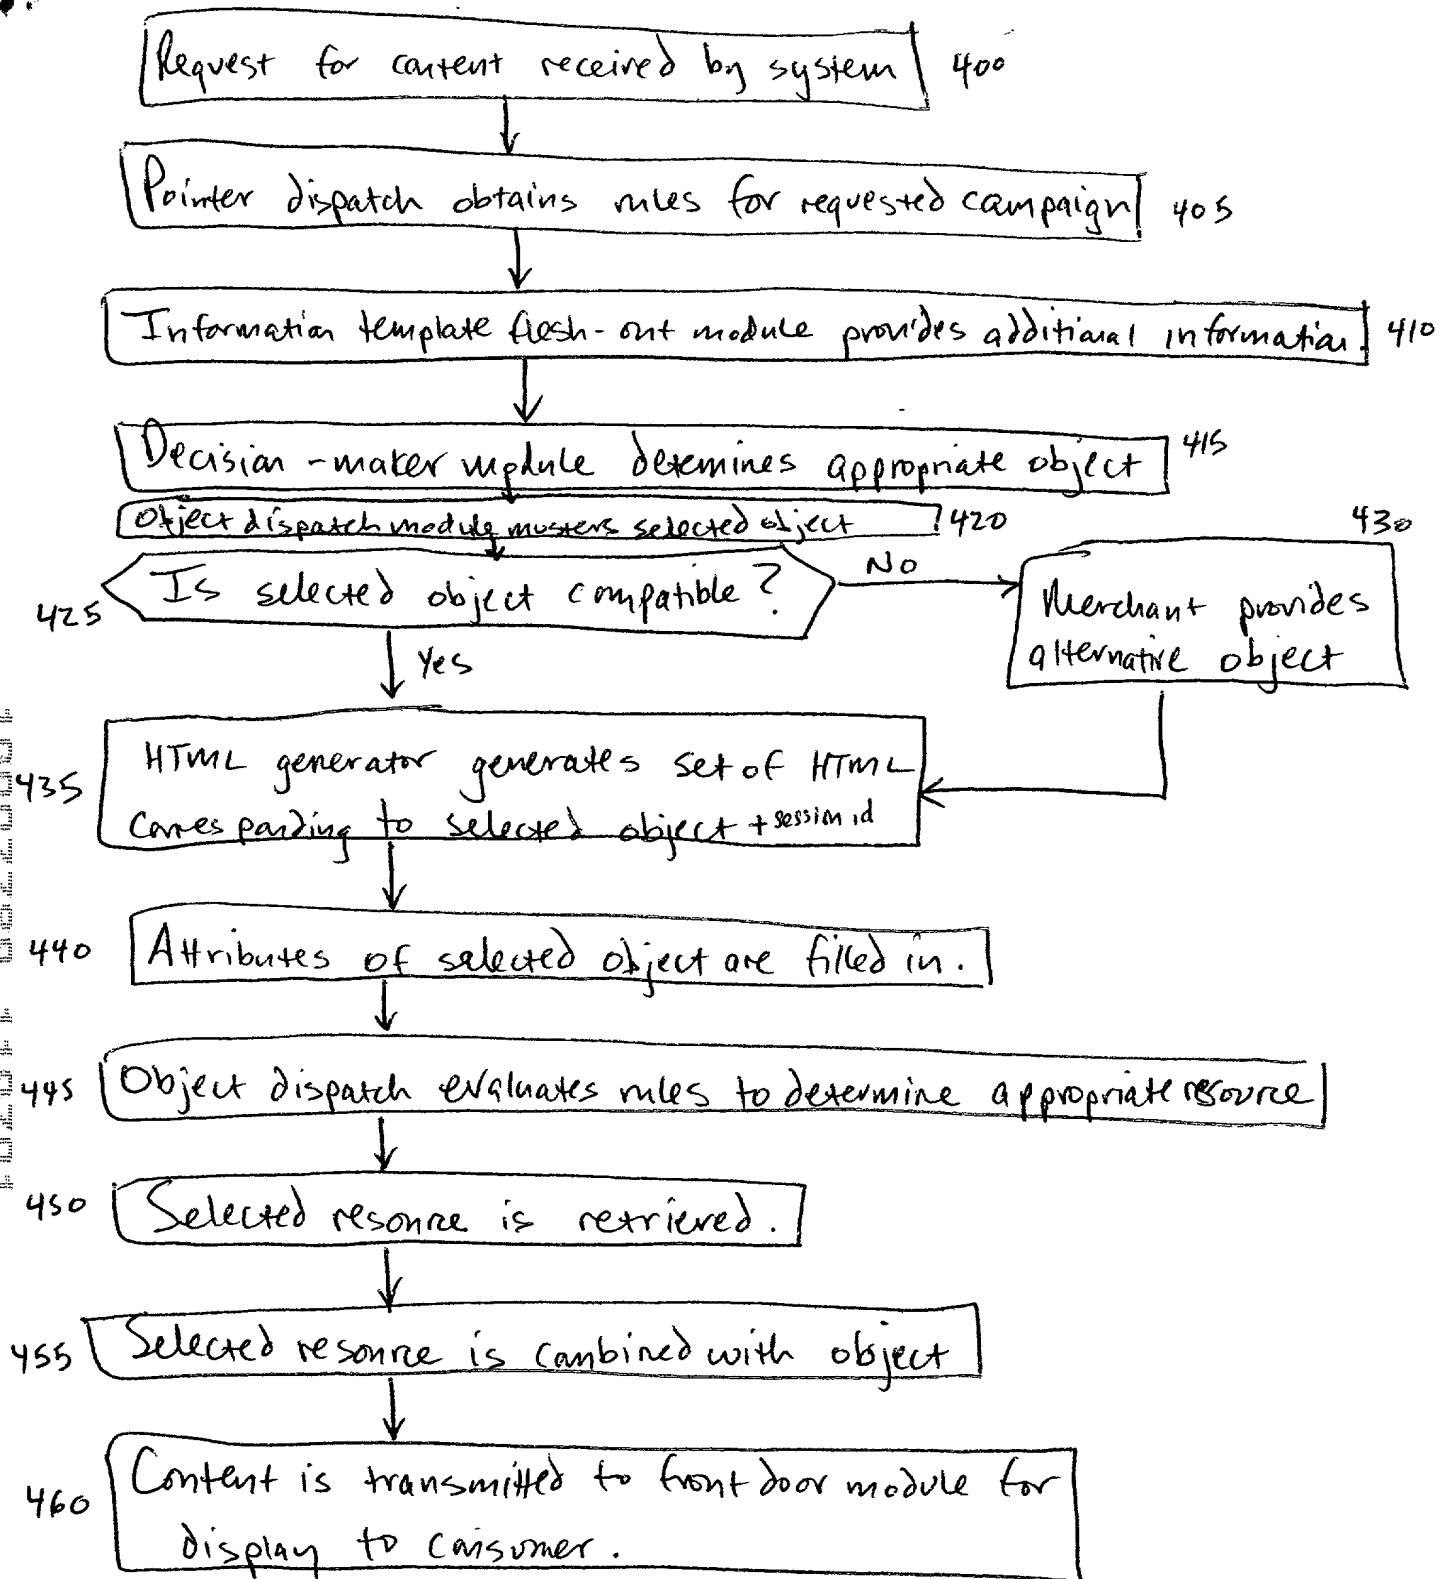 Request for content received by system 400
Pointer dispatch obtains rules for requested campaign 405
Information template flesh-out module provides additional information. 410
Decision-maker module detemines appropriate object 415
Object dispatch module musters selected object 420
430
Is selected object compatible?
425
No
Merchant provides
alternative object
Yes
435
HTML generator generates set of HTML
corresponding to selected object + session id
440 Attributes of selected object are filled in.
445 Object dispatch evaluates rules to determine appropriate resource
450 Selected resource is retrieved.
455 Selected resource is combined with object
460 Content is transmitted to front door module for
display to consumer.